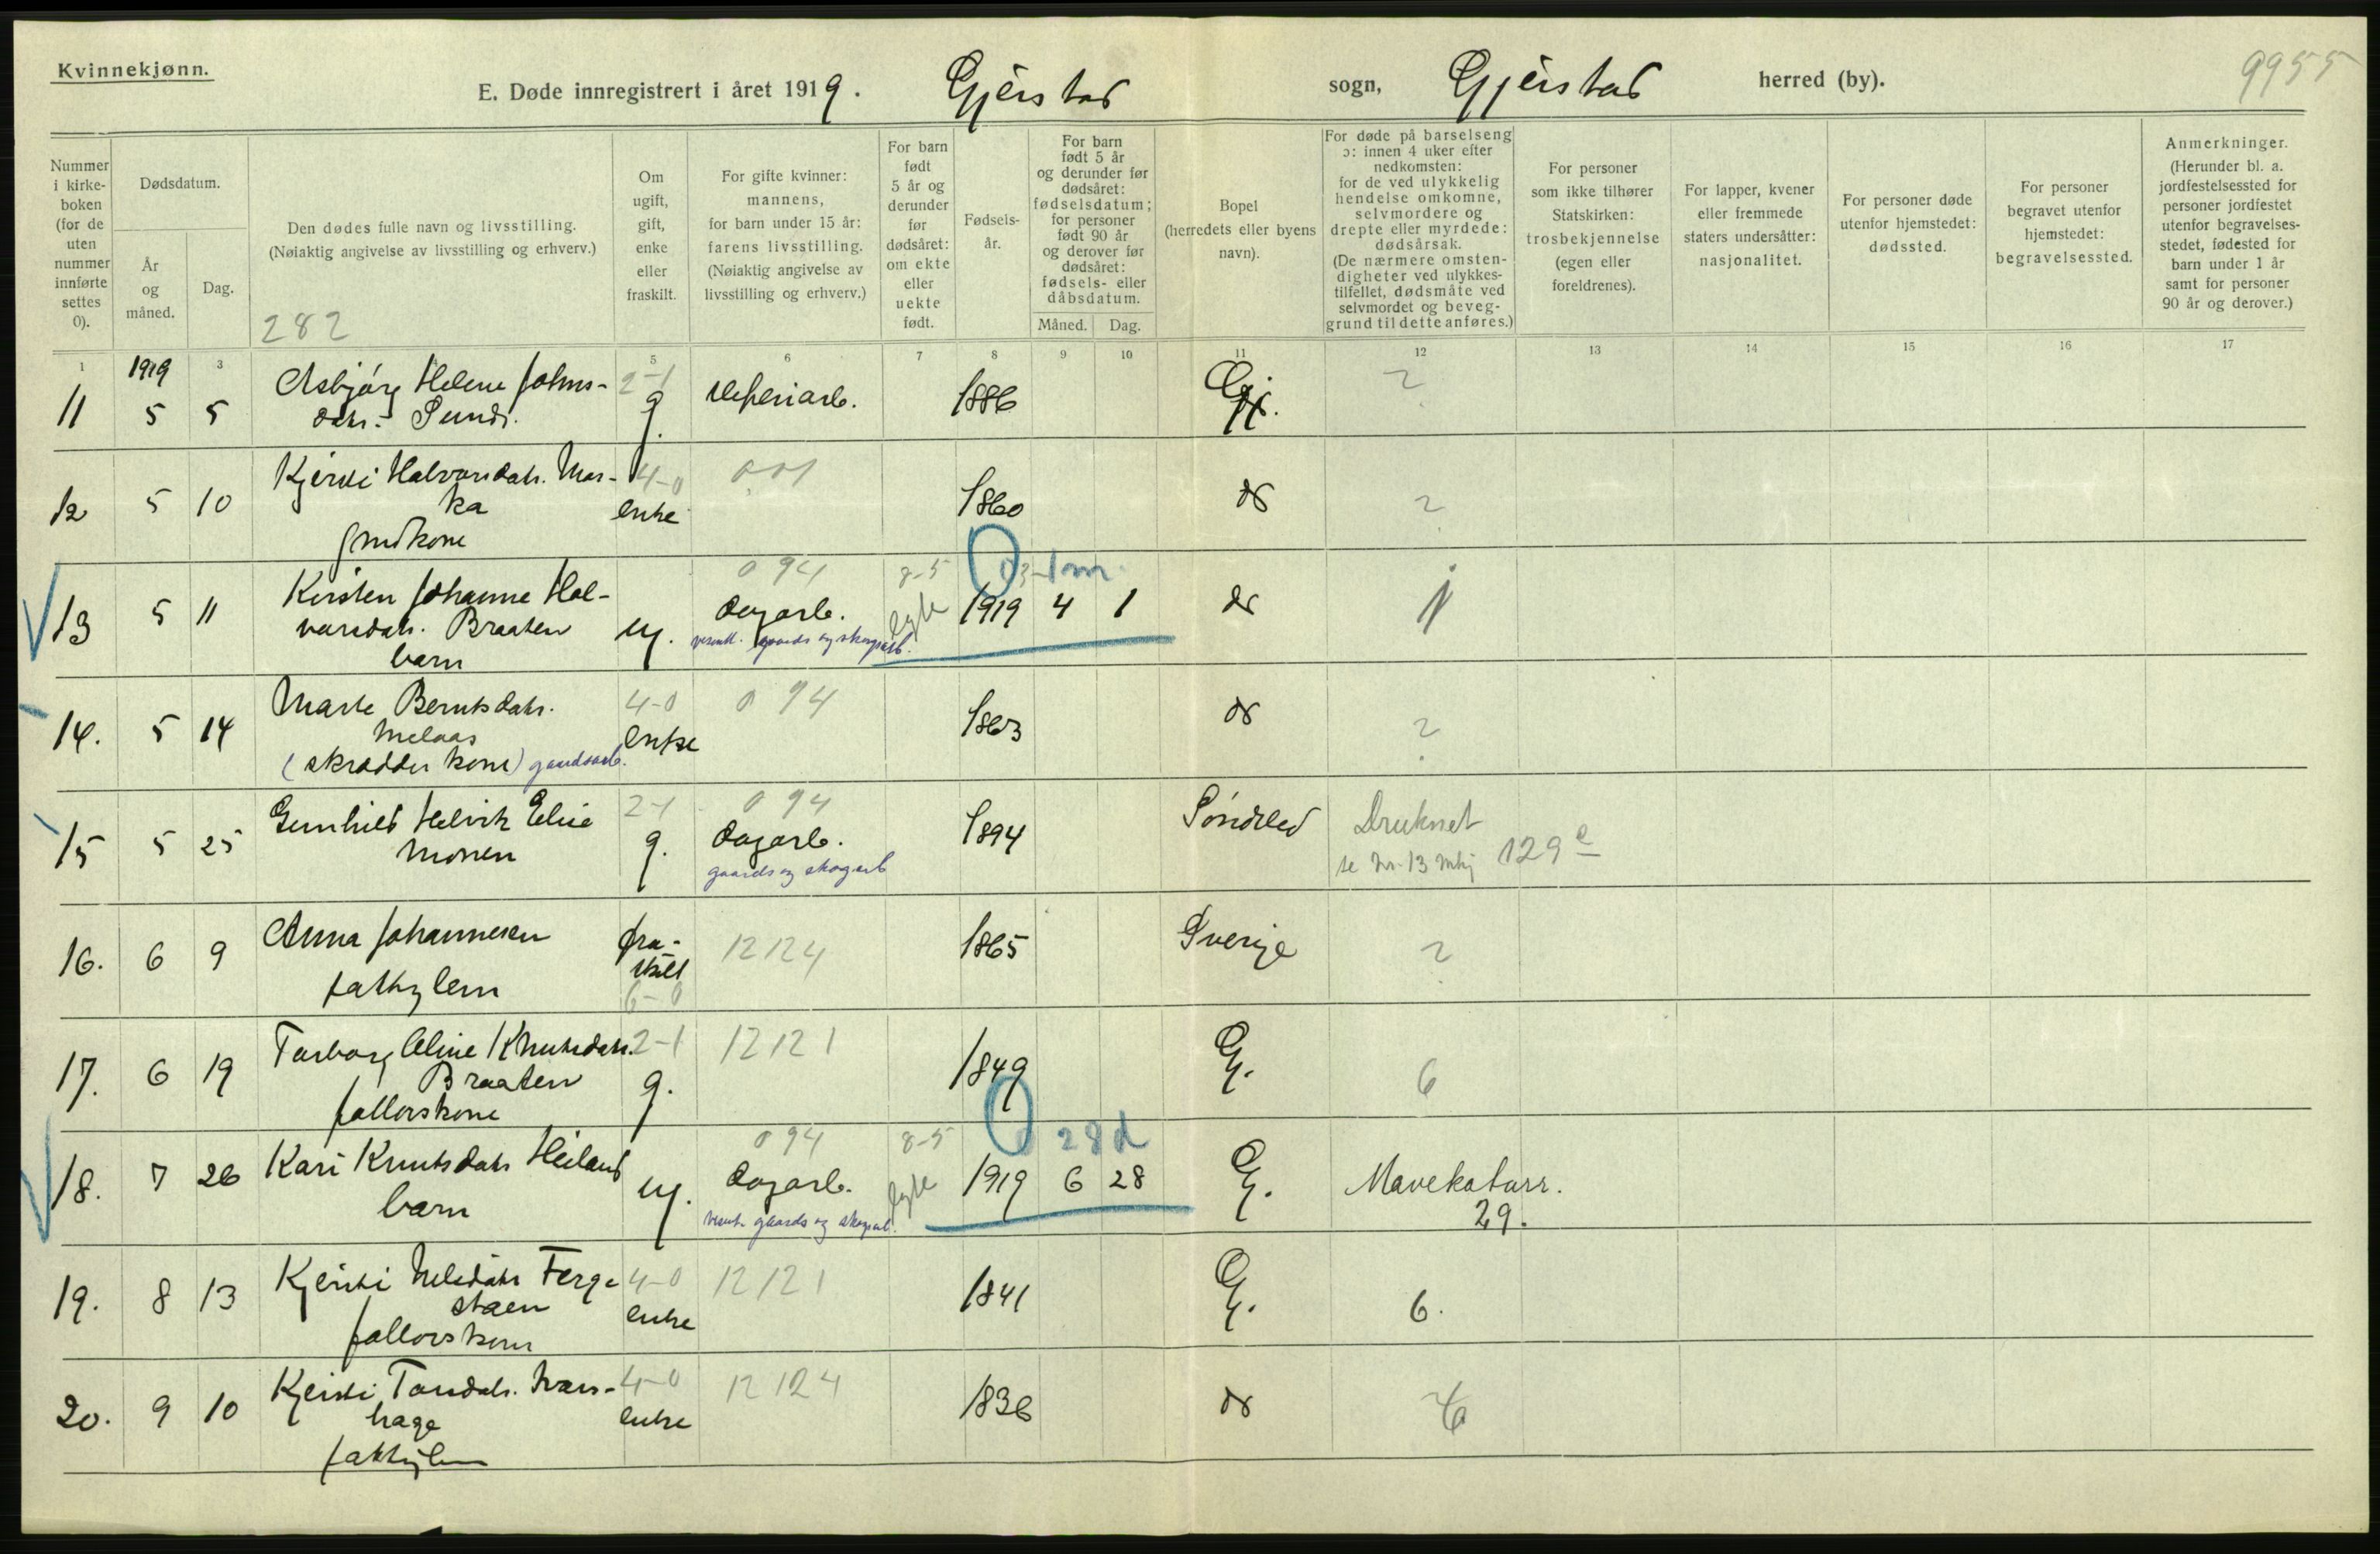 Kvinnekjønn.
E. Døde innregistrert i året 1919. Gjerstad sogn, Gjerstad herred (by). 9955
Nummer i kirkeboken (for de uten nummer innførte settes 0).
Dødsdatum.
År og måned.
Dag.
Den dødes fulle navn og livsstilling.
(Nøiaktig angivelse av livsstilling og erhverv.)
282
Om ugift, gift, enke eller fraskilt.
For gifte kvinner: mannens, for barn under 15 år: farens livsstilling. (Nøiaktig angivelse av livsstilling og erhverv.)
For barn født 5 år og derunder før dødsåret: om ekte eller uekte født.
Fødselsår.
For barn født 5 år og derunder før dødsåret: fødselsdatum; for personer født 90 år og derover før dødsåret: fødsels- eller dåbsdatum.
Måned.
Dag.
Bopel (herredets eller byens navn).
For døde på barselseng ɔ: innen 4 uker efter nedkomsten: for de ved ulykkelig hendelse omkomne, selvmordere og drepte eller myrdede: dødsårsak. (De nærmere omstendigheter ved ulykkestilfellet, dødsmåte ved selvmordet og beveggrund til dette anføres.)
For personer som ikke tilhører Statskirken: trosbekjennelse (egen eller foreldrenes).
For lapper, kvener eller fremmede staters undersåtter: nasjonalitet.
For personer døde utenfor hjemstedet: dødssted.
For personer begravet utenfor hjemstedet: begravelsessted.
Anmerkninger. (Herunder bl. a. jordfestelsessted for personer jordfestet utenfor begravelsesstedet, fødested for barn under 1 år samt for personer 90 år og derover.)
1 3 5 6 7 8 9 10 11 12 13 14 15 16 17
1919
11 5 5 Asbjørg Helene Johns- 2-1 1886 Gj. ?
datr. Sunde. g.
12 5 10 Kjersti Halvorsdatr. Mos- 4-0 001 1860 do ?
ka enke
13 5 11 Kirsten Johanne Hal- 094 8-5 1m
vorsdatr. Braaten ug. dagarb. egte 1919 4 1 do
barn gaards og skogsarb.
14. 5 14 Marte Berntsdatr. 4-0 094 1863 do ?
Melaas enke
(skrædder kone) gaardsarb.
15 5 25 Gunhild Helvik Eline 2-1 094 1894 Søndeled Druknet
Monen g. dagarb. se nr. 13 mkj 129 e
gaards og skogarb
16. 6 9 Anna Johannesen fra- 12124 1865 Sverige ?
skilt
fattiglem 6-0
17. 6 19 Torborg Oline Knutsdatr. 2-1 12121 1849 G. 6
Braaten g.
føllorskone
18. 7 26 Kari Knutsdatr Heiland 094 8-5 28d
ug. dagarb. egte 1919 6 28 G. Mavekatarr.
barn gaards og skogarb. 29.
19. 8 13 Kjersti Nilsdatr Ferge 4-0 12121 1841 G. 6.
staen enke
føllorskone
20. 9 10 Kjersti Torsdatr. 4-0 12124 1836 do 6
hage enke
fattiglem